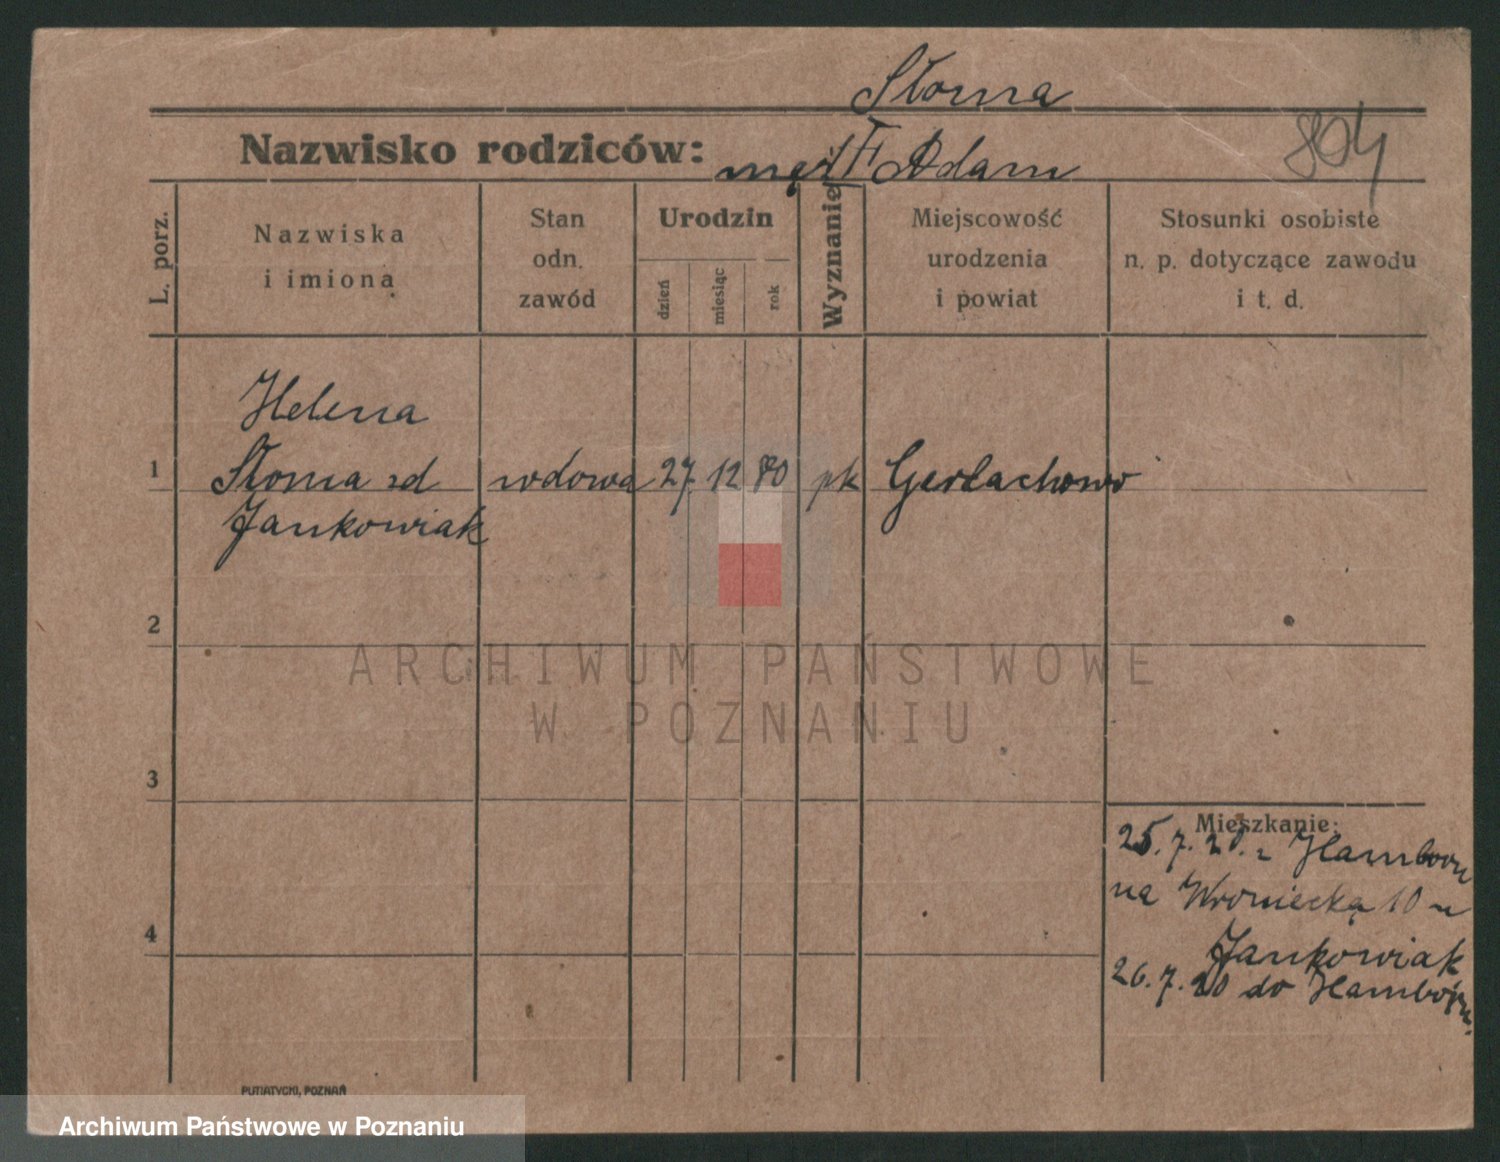 Słoma
Nazwisko rodziców: mąż † Adam
804
L. porz.
Nazwiska
i imiona
Stan
odn.
zawód
Urodzin
dzień
miesiąc
rok
Wyznanie
Miejscowość
urodzenia
i powiat
Stosunki osobiste
n. p. dotyczące zawodu
i t. d.
Helena
1 Słoma zd wdowa 27 12 80 rk Gerlachowo
Jankowiak
2
ARCHIWUM PAŃSTWOWE
W POZNANIU
3
Mieszkanie:
25.7.20. z Hamborn
na Wroniecką 10 u
4
Jankowiak
26.7.20 do Hamborn.
PUTIATYCKI, POZNAŃ
Archiwum Państwowe w Poznaniu